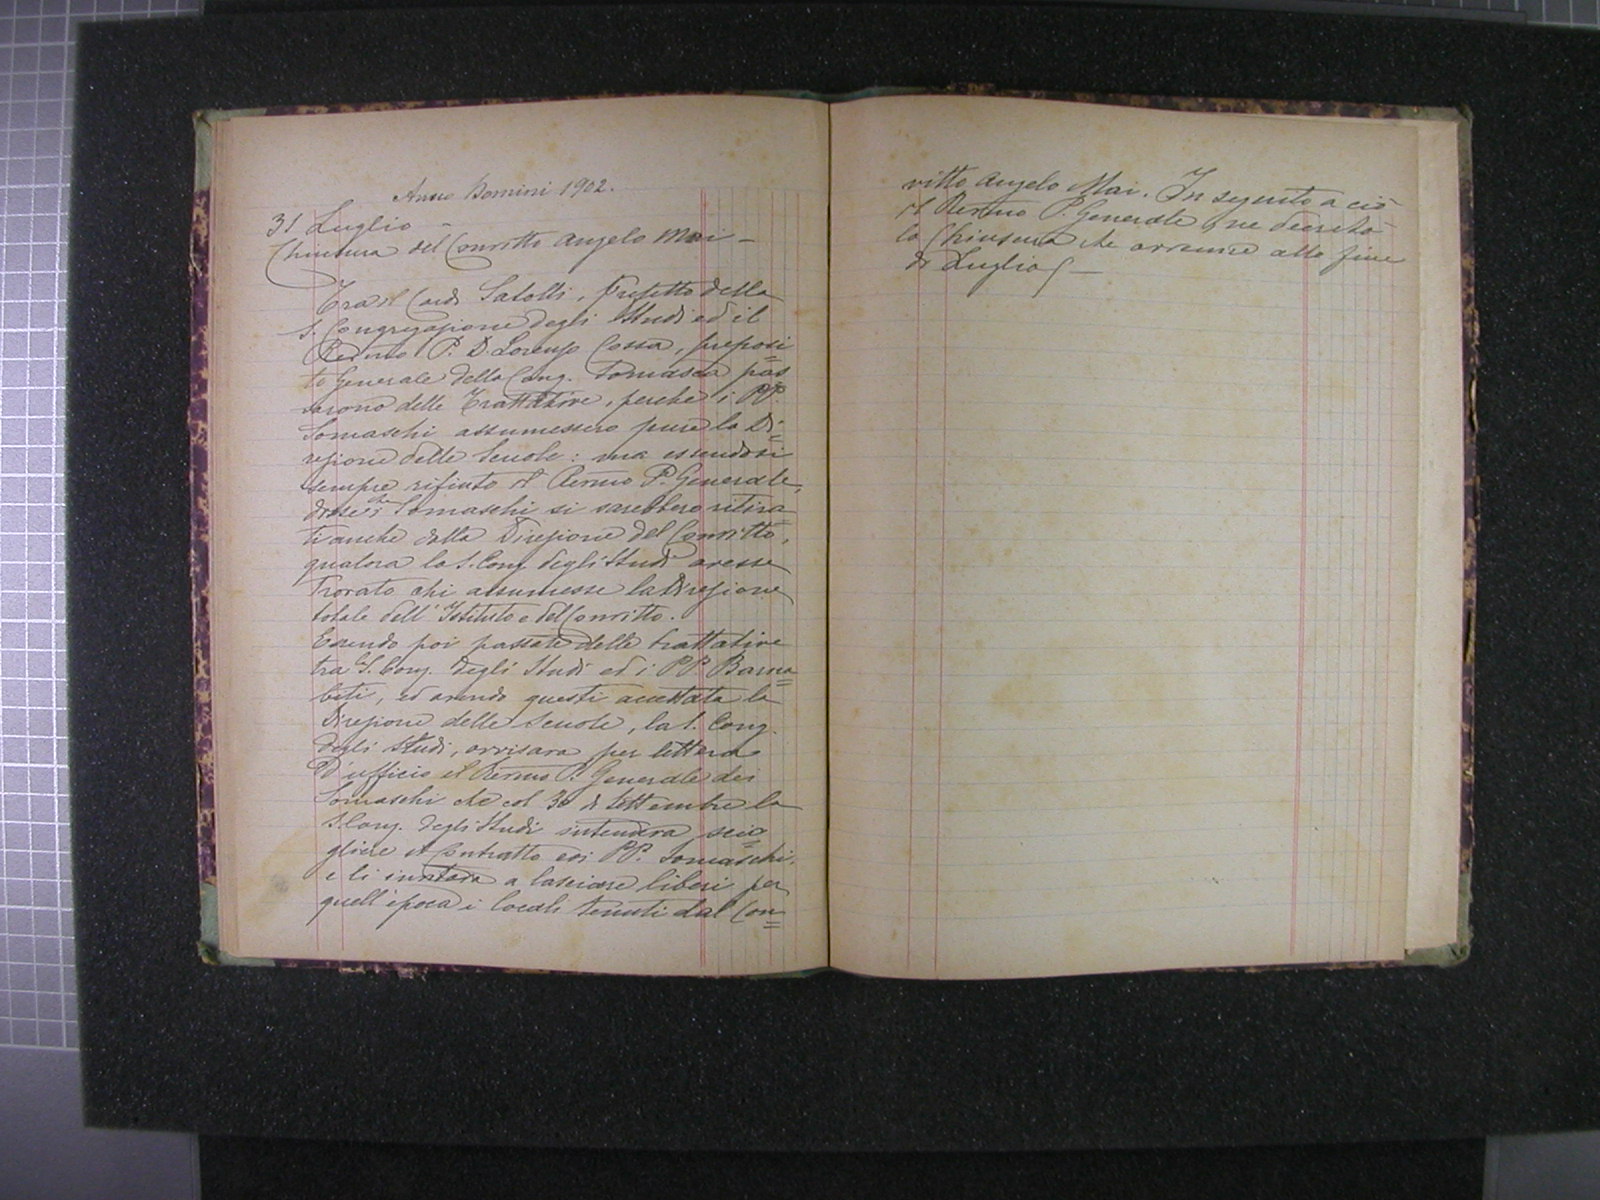 Anno Domini 1902.
31 Luglio -
Chiusura del Convitto Angelo Mai -
Tra il Card. Satolli, Prefetto della
S. Congregazione degli Studi ed il
Revmo P. D. Lorenzo Cossa, preposi=
to Generale della Cong. Somasca pas
sarono delle trattative, perchè i PP.
Somaschi assumessero pure la Di=
rezione delle Scuole: ma essendosi
sempre rifiuto il Revmo P. Generale,
che i Somaschi si sarebbero ritira
ti anche dalla Direzione del Convitto,
qualora la S. Cong. degli Studi avesse
trovato chi assumesse la Direzione
totale dell'Istituto e del Convitto.
Essendo poi passate delle trattative
tra la S. Cong. degli Studi ed i PP. Barna=
biti, ed avendo questi accettata la
direzione delle Scuole, la S. Cong.
degli Studi, avvisava per lettera
d'ufficio il Revmo P. Generale dei
Somaschi che col 30 di Settembre la
S. Cong. degli Studi intendeva scio=
gliere il Contratto coi PP. Somaschi,
e li invitava a lasciare liberi per
quell'epoca i locali tenuti dal Con=
vitto Angelo Mai. In seguito a ciò
il Revmo P. Generale ne decretò
la Chiusura che avvenne alla fine
di Luglio. -